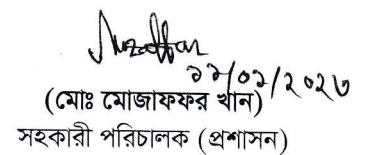 ২২/০২/২০২৩
(মোঃ মোজাফফর খান)
সহকারী পরিচালক (প্রশাসন)